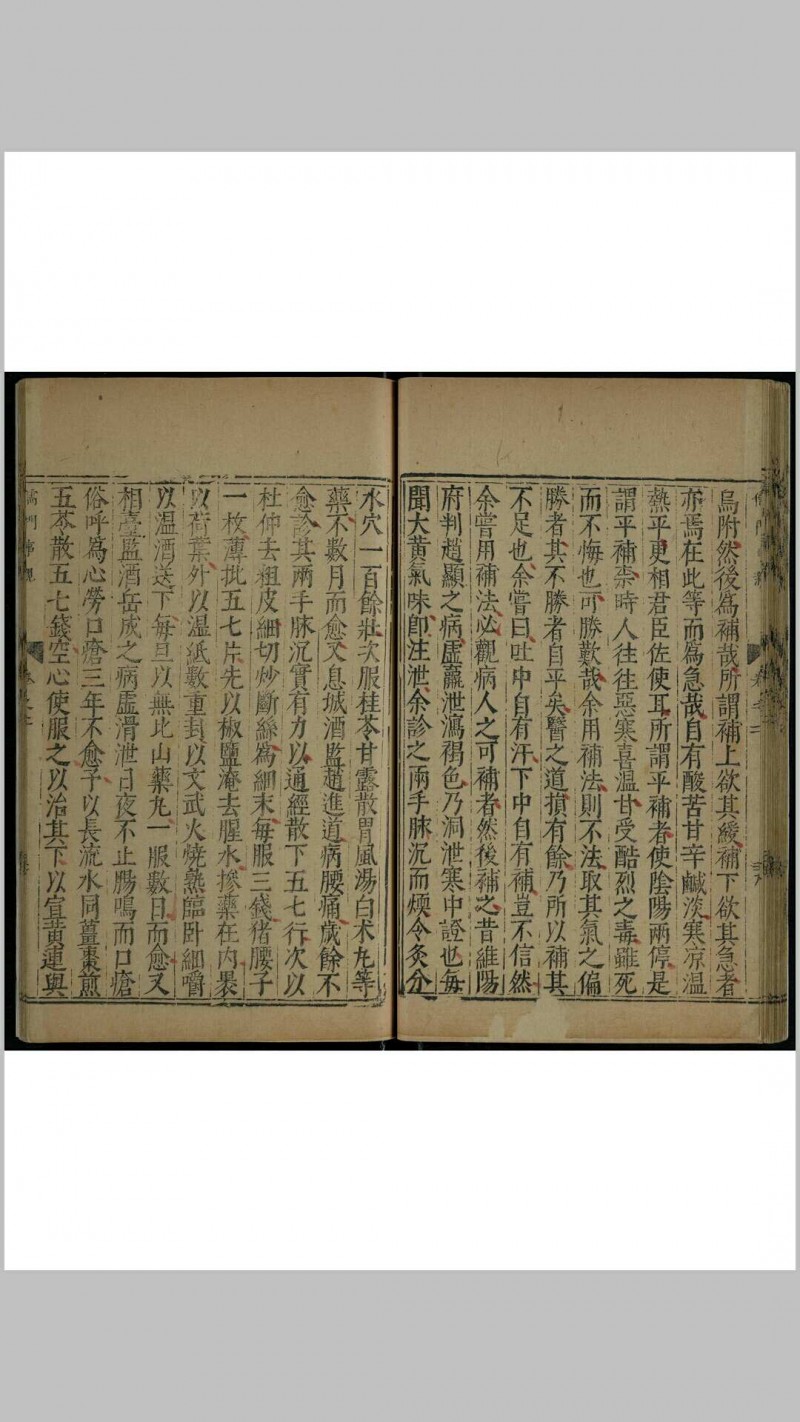 烏附然後爲補哉所謂補上欲其緩補下欲其急者
亦焉在此等而爲急哉自有酸苦甘辛鹹淡寒凉温
熱平更相君臣佐使耳所謂平補者使陰陽兩停是
謂平補柰時人往往惡寒喜温甘受酷烈之毒雖死
而不悔也可勝歎哉余用補法則不法取其氣之偏
勝者其不勝者自平矣醫之道損有餘乃所以補其
不足也余嘗曰吐中自有汗下中自有補豈不信然
余嘗用補法必觀病人之可補者然後補之昔維陽
府判趙顯之病虛羸泄瀉褐色乃洞泄寒中證也每
聞大黄氣味卽注泄余診之兩手脉沉而煗令灸分
水穴一百餘壯次服桂苓甘露散胃風湯白术丸等
藥不數月而愈又息城酒監趙進道病腰痛歲餘不
愈診其兩手脉沉實有力以通經散下五七行次以
杜仲去粗皮細切炒斷絲爲細末每服三錢猪腰子
一枚薄批五七片先以椒鹽淹去腥水摻藥在內裹
以荷葉外以温紙數重封以文武火燒熟臨卧細嚼
以温酒送下每旦以無比山藥丸一服數日而愈又
相臺監酒岳成之病虛滑泄日夜不止腸鳴而口瘡
俗呼爲心勞口瘡三年不愈予以長流水同薑棗煎
五苓散五七錢空心使服之以治其下以宣黄連與